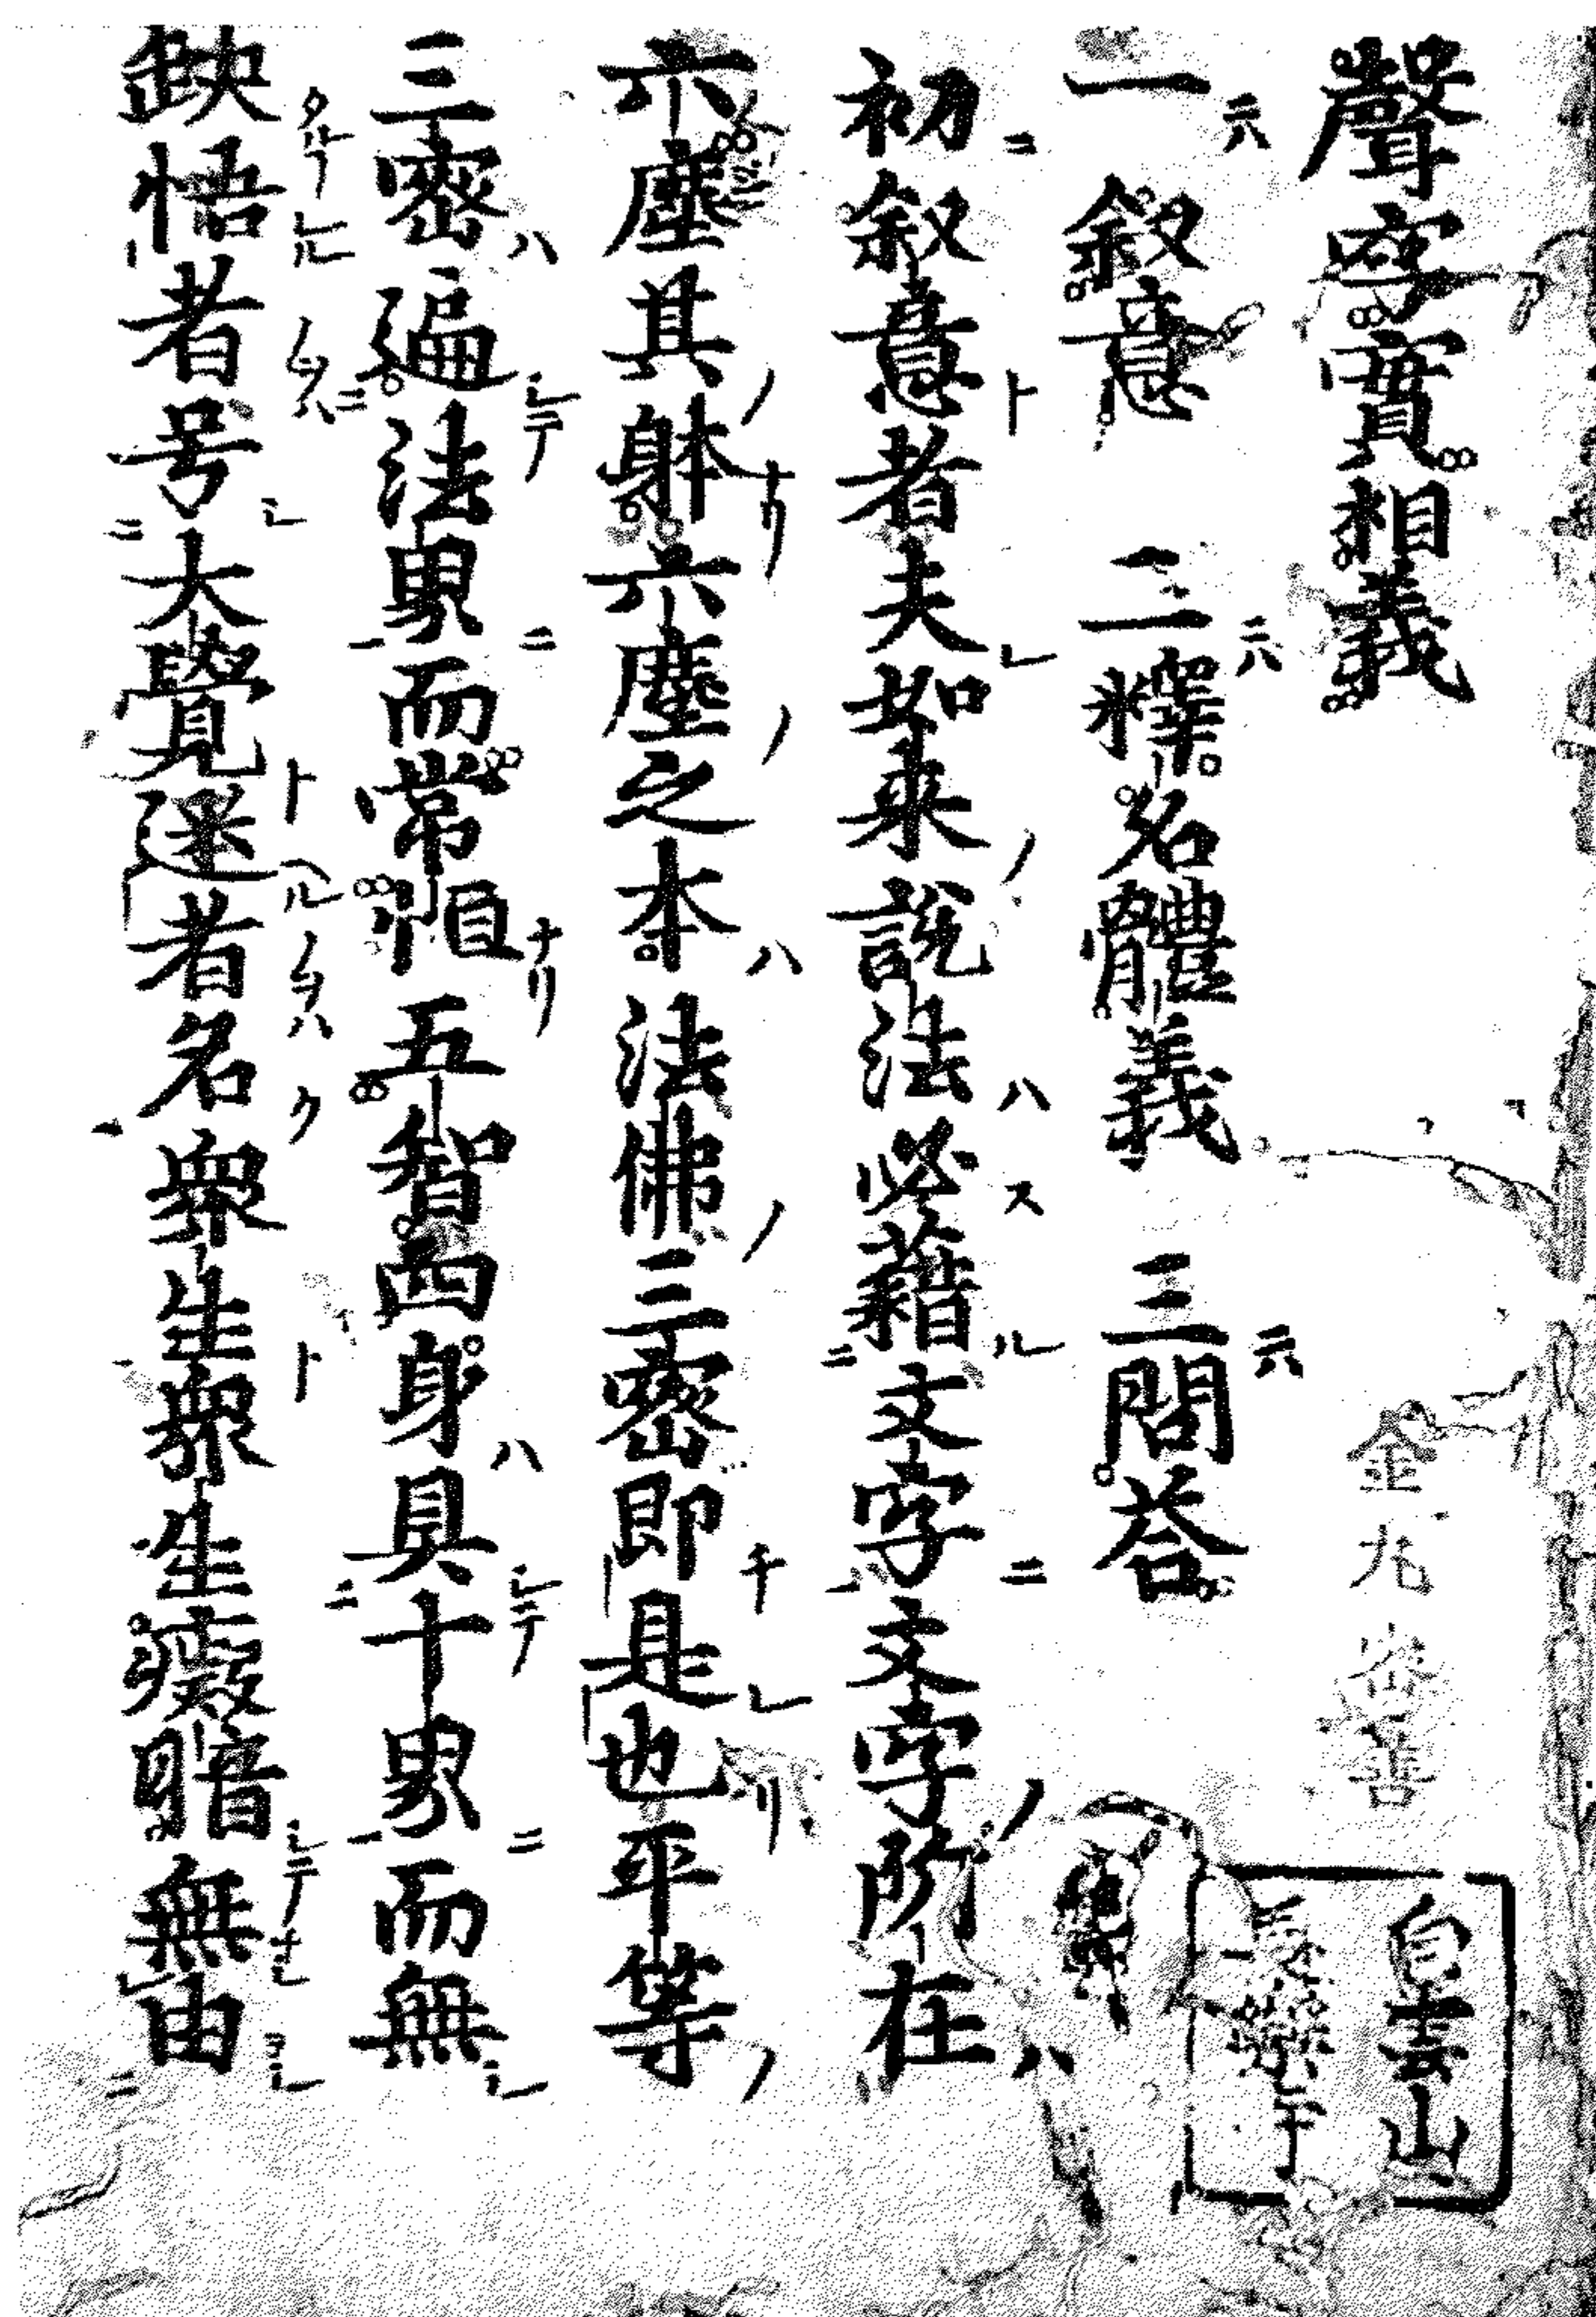 聲字實相義
金九 密善
白雲山
一叙意 二釋名體義 三問荅
初叙意者夫如来說法必藉文字文字所在
六塵其躰六塵之本法佛三密即是也平等
三密遍法界而常恒五智四身具十界而無
缺悟者号大覺迷者名衆生衆生癡暗無由